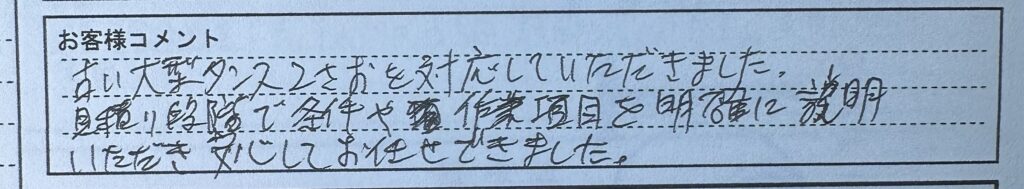 お客様コメント
古い大型タンス2さおを対応していただきました。
見積り段階で条件や作業項目を明確に説明
いただき安心してお任せできました。